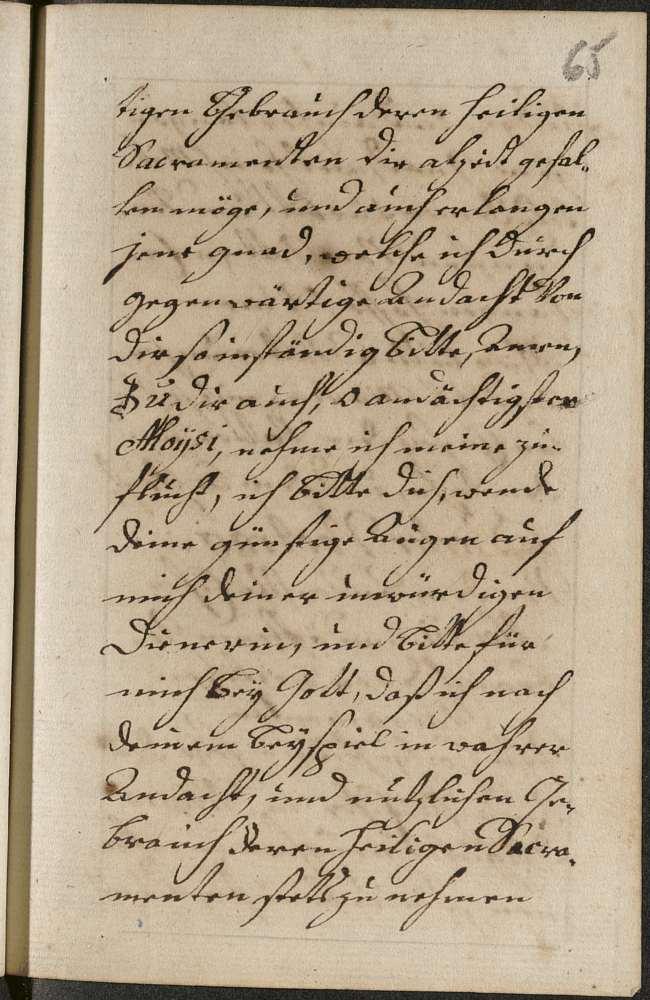 65
tigen Gebrauch deren heiligen
Sacramenten dir alzeit gefal-
len möge, und auch erlangen
jene gnad, welche ich durch
gegenwärtige Andacht Von
dir so inständig bitte, Amen,
Zu dir auch, o andächtigster
Aloysi, nehme ich meine zu-
flucht, ich bitte dich, wende
deine günstige Augen auf
mich deiner unwürdigen
Dienerin, und bitte für
mich bey Gott, daß ich nach
deinem beyspiel in wahrer
Andacht, und nutzlichen Ge-
brauch deren heiligen Sacra-
menten stets zu nehmen